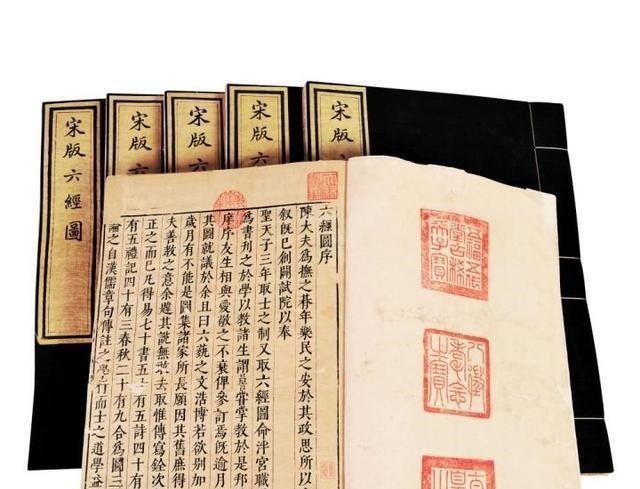 宋版六經圖
宋版六
宋版六
宋版六
宋版
六經圖序
陳大夫爲撫之朞年樂民之安於其政思所以
叙既已創闢試院以奉
聖天子三年取士之制又取六經圖命泮宮職
爲書刊之於學以敎諸生謂甞掌敎於是邦
庠序友生相與愛敬之不衰俾參訂焉既逾月
其圖就議於余且曰六藝之文浩博若欲別加
歲月有不能是圖集諸家所長願因其舊庶得
夫善教之意余避其説無去取惟傳寫銓次
正之而已凡得易七十書五十有五詩四十有
有五禮記四十有三春秋二十有九合爲圖三
之自漢儒章句傳註之學行而士之道學益
五福五代堂古稀天子寶
八徵耄念之寶